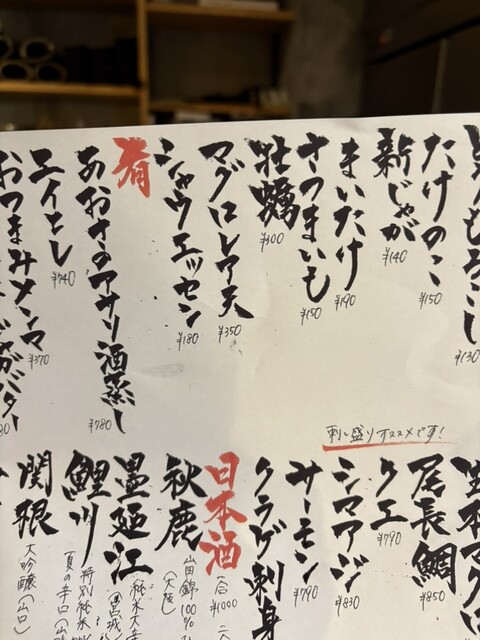 とうもろこし
¥130
たけのこ
¥150
新じゃが
¥140
まいたけ
¥190
さつまいも
¥150
牡蠣
¥300
マグロレア天
¥350
シャウエッセン
¥180
肴
あおさのアサリ酒蒸し
¥780
エイヒレ
¥740
おつまみメンマ
¥370
じゃがバター
刺し盛りオススメです!
生本マグロ
尾長鯛
¥850
クエ
¥790
シマアジ
¥830
サーモン
¥790
クラゲ刺身
日本酒
一合
¥1000
秋鹿
山田錦100%
(大阪)
墨廼江
(宮城)
鯉川
特別純米
夏の辛口
関娘
大吟醸(山口)